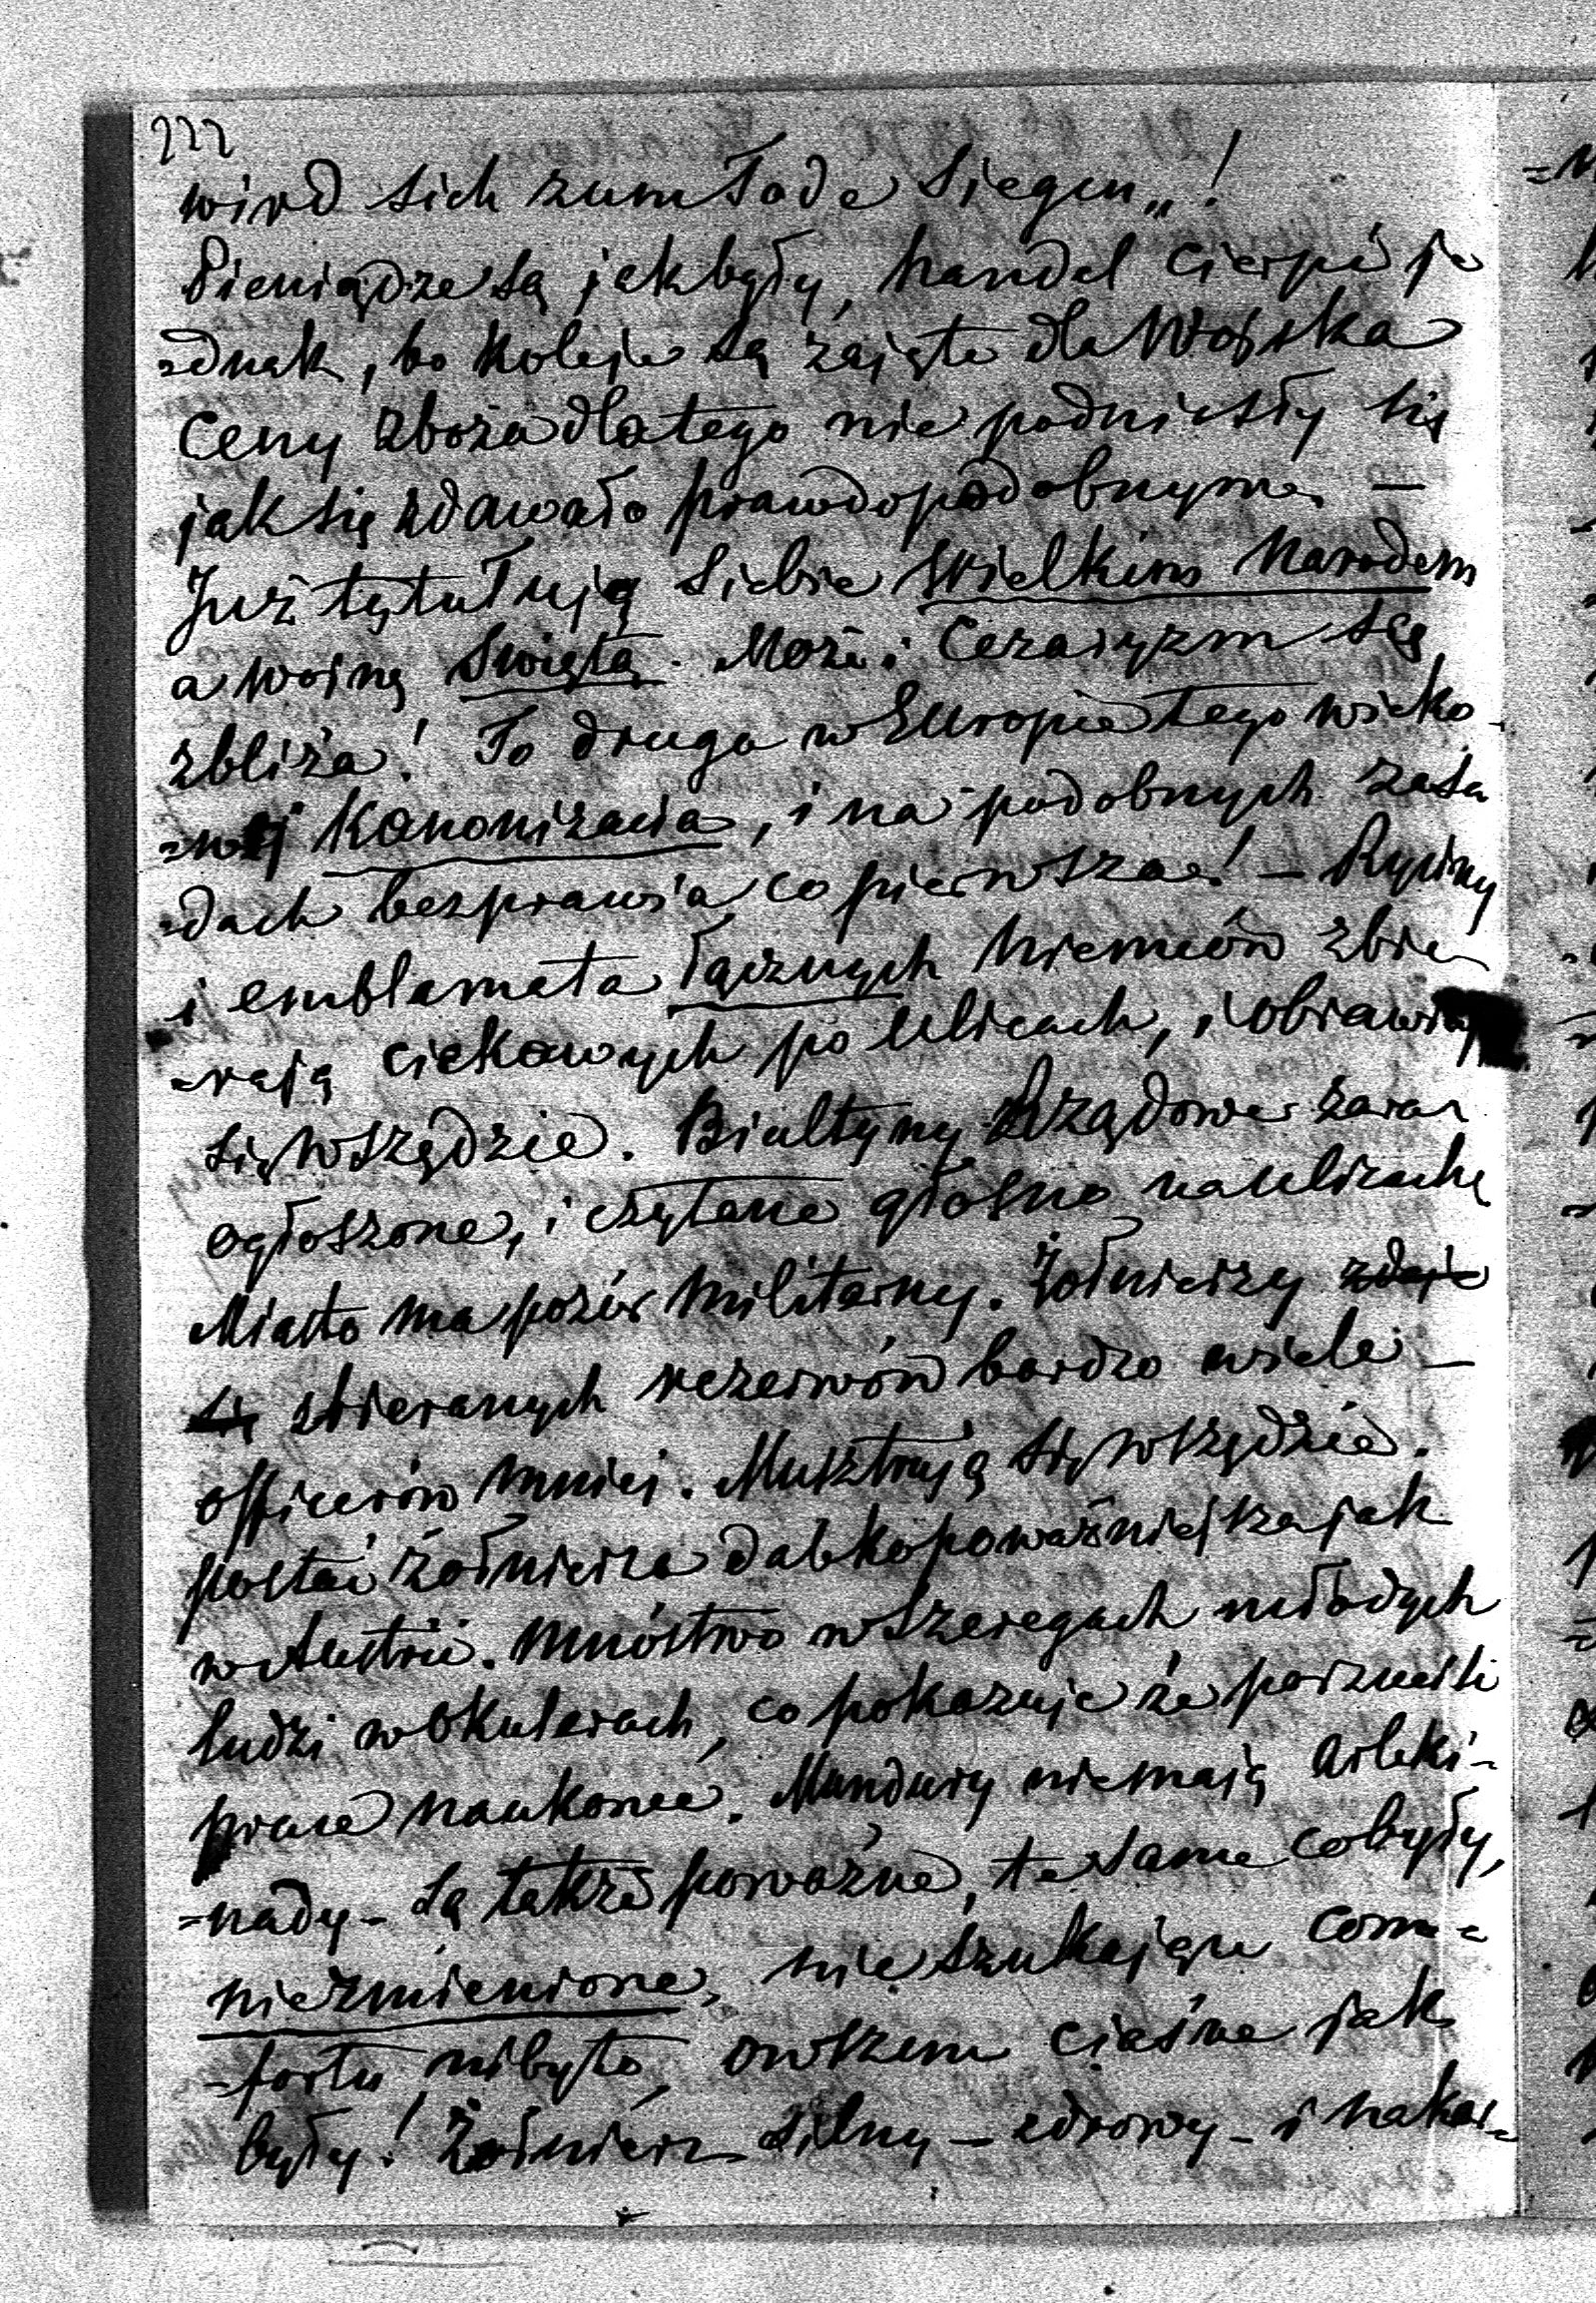 222
wird sich zum Tode siegen„!
Pieniądze są jak były, handel cierpi je
=dnak, bo koleje są zajęte dla Wojska
Ceny zboża dlatego nie podniesły się
jak się zdawało prawdopodobnym. —
Już tytułują siebie wielkim Narodem
a wojnę świętą. Może i Cezaryzm się
zbliża! To druga w Europie tego wieko
=wej Kanonizacia, i na podobnych zasa
=dach bezprawia co pierwsza! — Ryciny
i emblamata łącznych Niemców zbie
=rają ciekawych po ulicach, i
się wszędzie. Biultyny Rządowe zaraz
ogłoszone, i czytane głośno na ulicach
Miasto ma pozór militarny. Żołnierzy zdaje
się zbieranych rezerwów bardzo wiele —
officerów mniej. Musztrują się wszędzie.
postać żołnierza daleko poważniejsza jak
w Austrii. Mnóstwo w szeregach młodych
ludzi w okularach, co pokazuje że porzucili
prace naukowe. Mundury niemają arleki-
=nady – są także poważne, te same co były,
niezmienione, nie szukające com=
=fortu nibyto, owszem ciaśne jak
były! Żołnierz silny – zdrowy – i